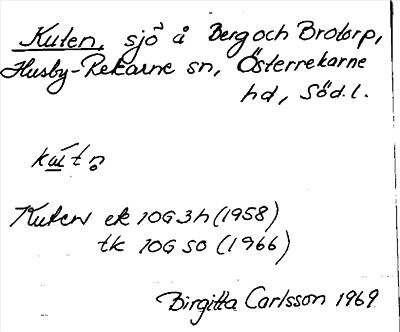 Kuten, sjö å Berg och Brotorp,
Husby-Rekarne sn, Österrekarne
hd, Söd. l.
Kuten ek 10G3h (1958)
tk 10G SO (1966)
Birgitta Carlsson 1969